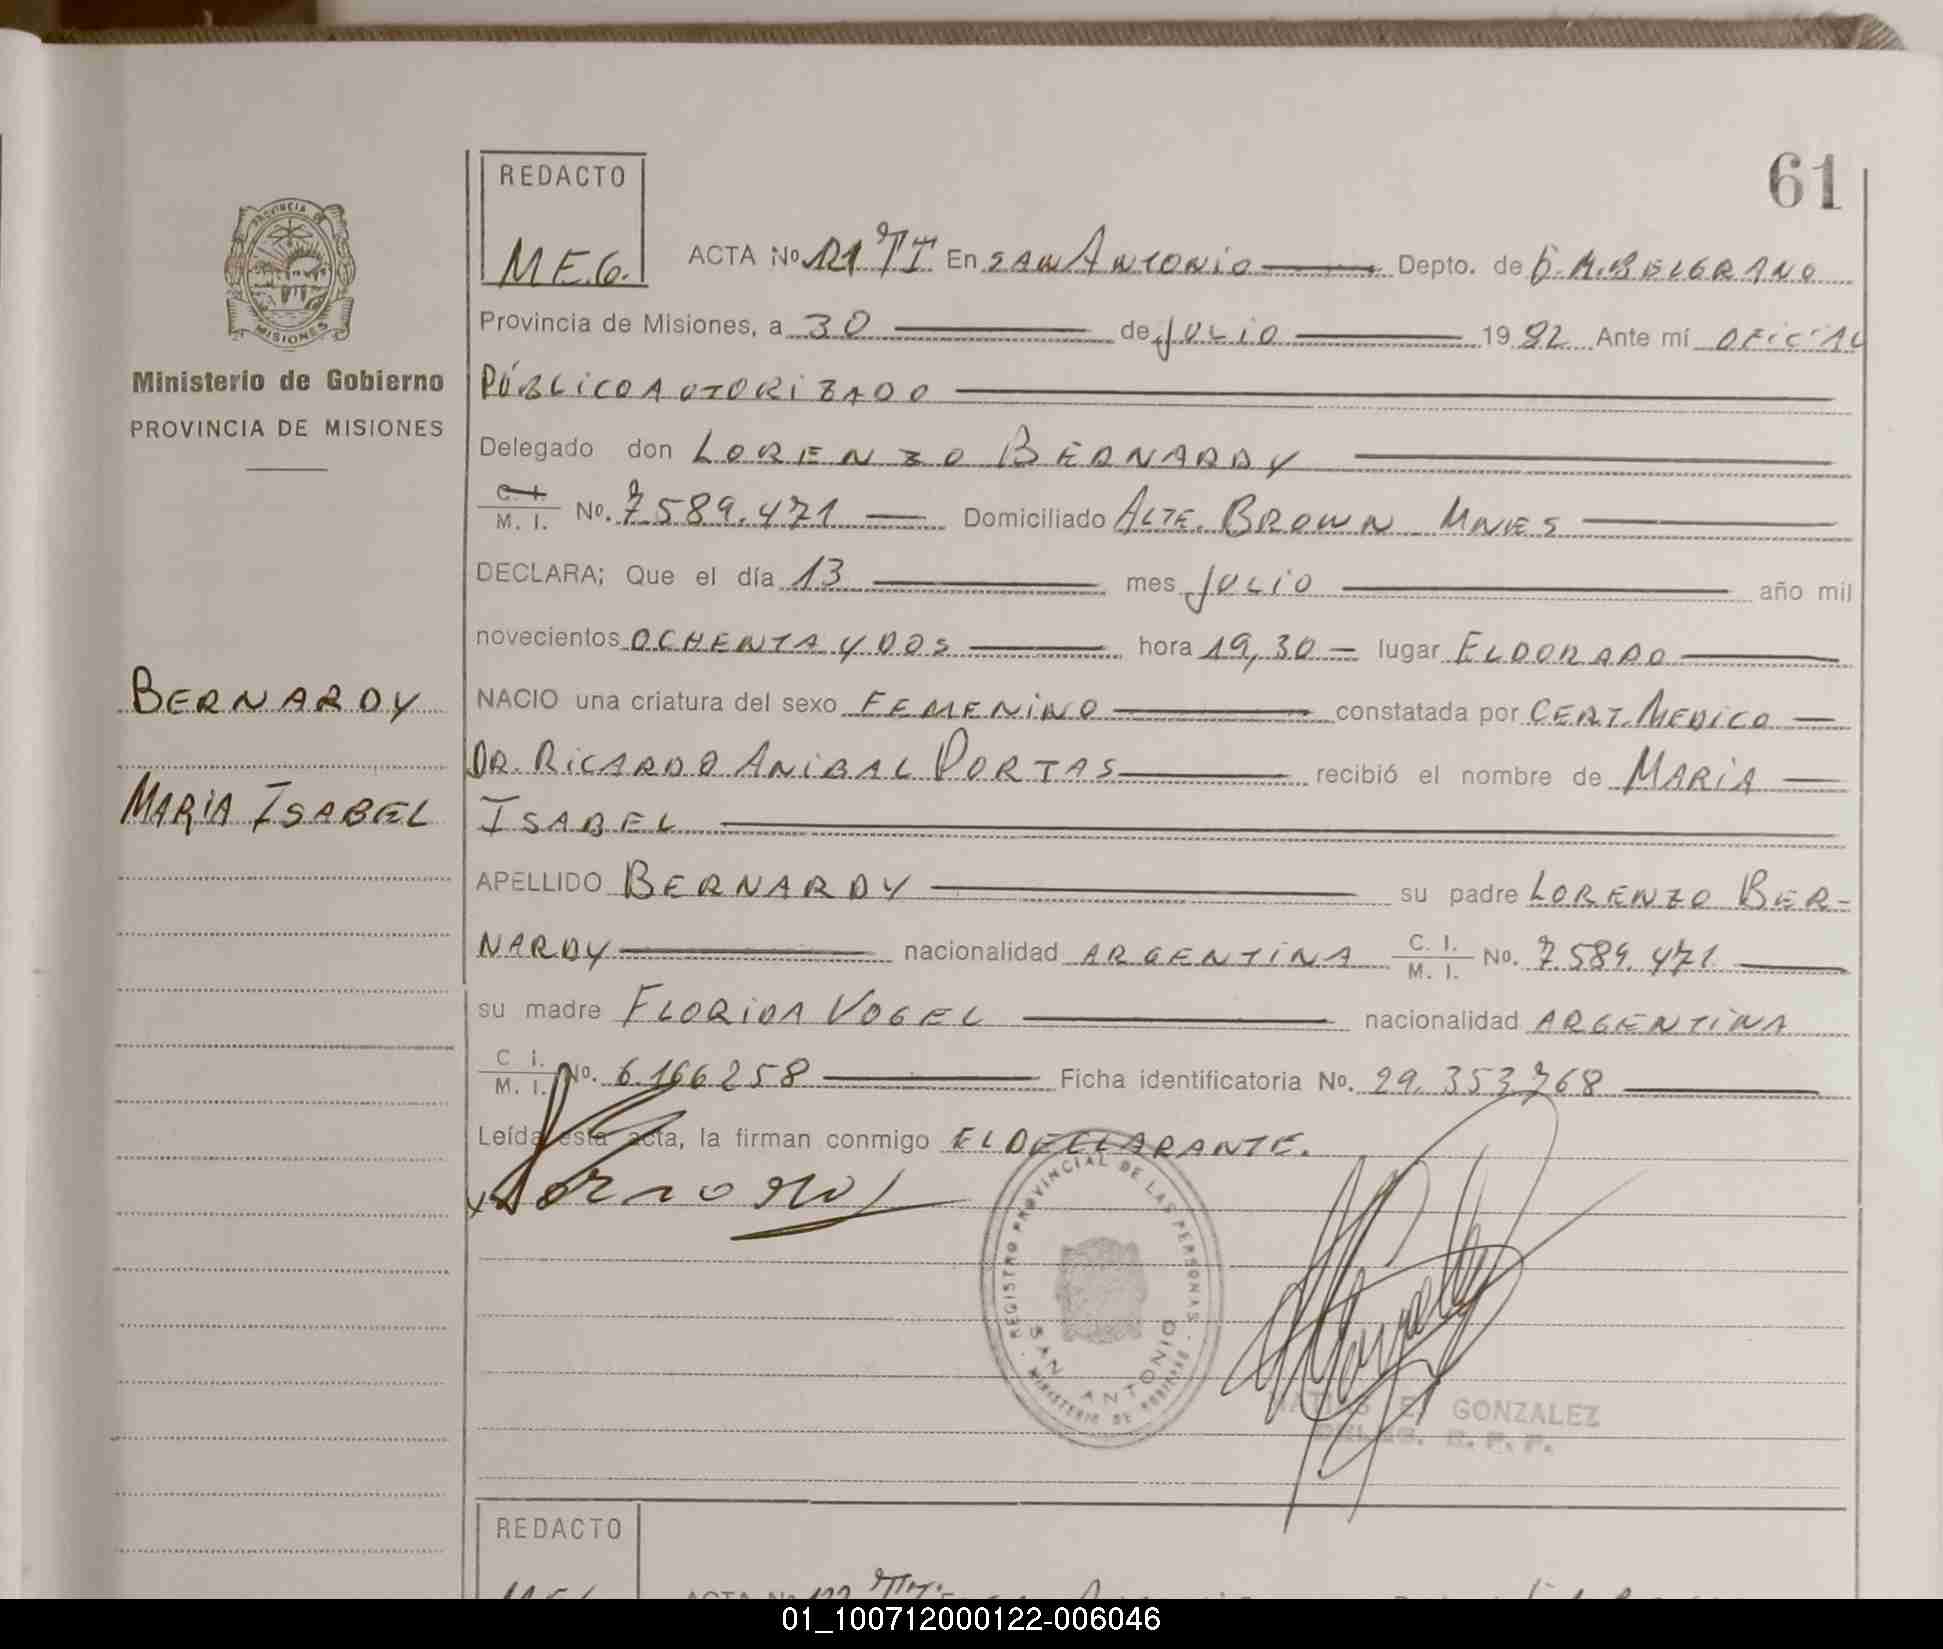 61
REDACTO
M.E.G.
ACTA No. 121 TI En SAN ANTONIO Depto. de G.M.BELGRANO
Provincia de Misiones, a 30 de JULIO 1982 Ante mí OFICIAL
PÚBLICO AUTORIZADO
Delegado don LORENZO BERNARDY
C. I.
M. I. No. 7.589.471 Domiciliado ALTE. BROWN MNES
DECLARA; Que el día 13 mes JULIO año mil
novecientos OCHENTA Y DOS hora 19,30 lugar ELDORADO
NACIO una criatura del sexo FEMENINO constatada por CERT. MEDICO
DR. RICARDO ANIBAL PORTAS recibió el nombre de MARIA
ISABEL
APELLIDO BERNARDY su padre LORENZO BER-
NARDY nacionalidad ARGENTINA C. I. M. I. No. 7.589.471
su madre FLORIDA VOGEL nacionalidad ARGENTINA
C I. M. I. No. 6.166258 Ficha identificatoria No. 29.353.768
Leída esta acta, la firman conmigo EL DECLARANTE.
PROVINCIA DE
MISIONES
Ministerio de Gobierno
PROVINCIA DE MISIONES
BERNARDY
MARIA ISABEL
REGISTRO PROVINCIAL DE LAS PERSONAS
SAN ANTONIO
MINISTERIO DE GOBIERNO
E. GONZALEZ
DELEG. R. P. P.
REDACTO
01_100712000122-006046